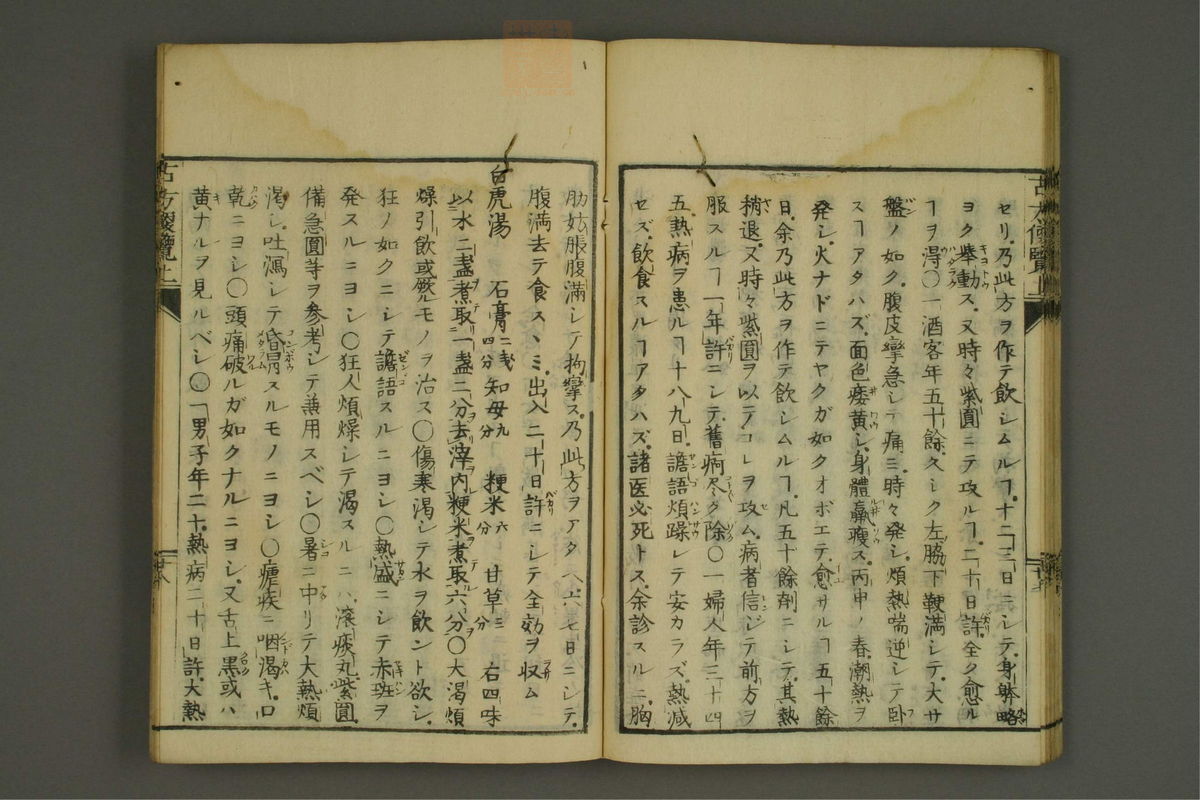 セリ乃此方ヲ作テ飲シムルヿ十二三日ニシテ身躰略
ヨク舉動ス又時々紫圓ニテ攻ルヿ二十日許全ク愈ル
ヿヲ淂〇一酒客年五十餘久シク左脇下鞕満シテ大サ
盤ノ如ク腹皮攣急シテ痛ミ時々発シ煩熱喘逆シテ卧
スヿアタハズ面色痿黄シ身體羸瘦ス丙申ノ春潮熱ヲ
発シ火ナドニテヤクガ如クオボエテ愈サルヿ五十餘
日余乃此方ヲ作テ飲シムルヿ凡五十餘剤ニシテ其熱
稍退又時々紫圓ヲ以テコレヲ攻ム病者信ジテ前方ヲ
服スルヿ一年許ニシテ舊痾尽ク除〇一婦人年三十四
五熱病ヲ患ルヿ十八九日譫語煩躁シテ安カラズ熱減
セズ飲食スルヿアタハズ諸医必死トス余診スルニ胸
肋妨脹腹滿シテ拘攣ス乃此方ヲアタヘ六七日ニシテ
腹満去テ食スヽミ出入二十日許ニシテ全効ヲ収ム
白虎湯 石膏二戋四分 知母九分 粳米六分 甘草三分 右四味
以水二盏煮取一盏二分去滓内粳米煮取六分〇大渇煩
燥引飲或𩞄モノヲ治ス〇傷寒渇シテ水ヲ飲ント欲シ
狂ノ如クニシテ譫語スルニヨシ〇熱盛ニシテ赤斑ヲ
発スルニヨシ〇狂人煩燥シテ渇スルニハ滚痰丸紫圓
備急圓等ヲ参考シテ兼用スベシ〇暑ニ中リテ大熱煩
渇シ吐瀉シテ昏冒スルモノニヨシ〇瘧疾ニ咽渇キ口
乾ニヨシ〇頭痛破ルガ如クナルニヨシ又舌上黒或ハ
黄ナルヲ見ルベシ〇一男子年二十熱病二十日許大熱